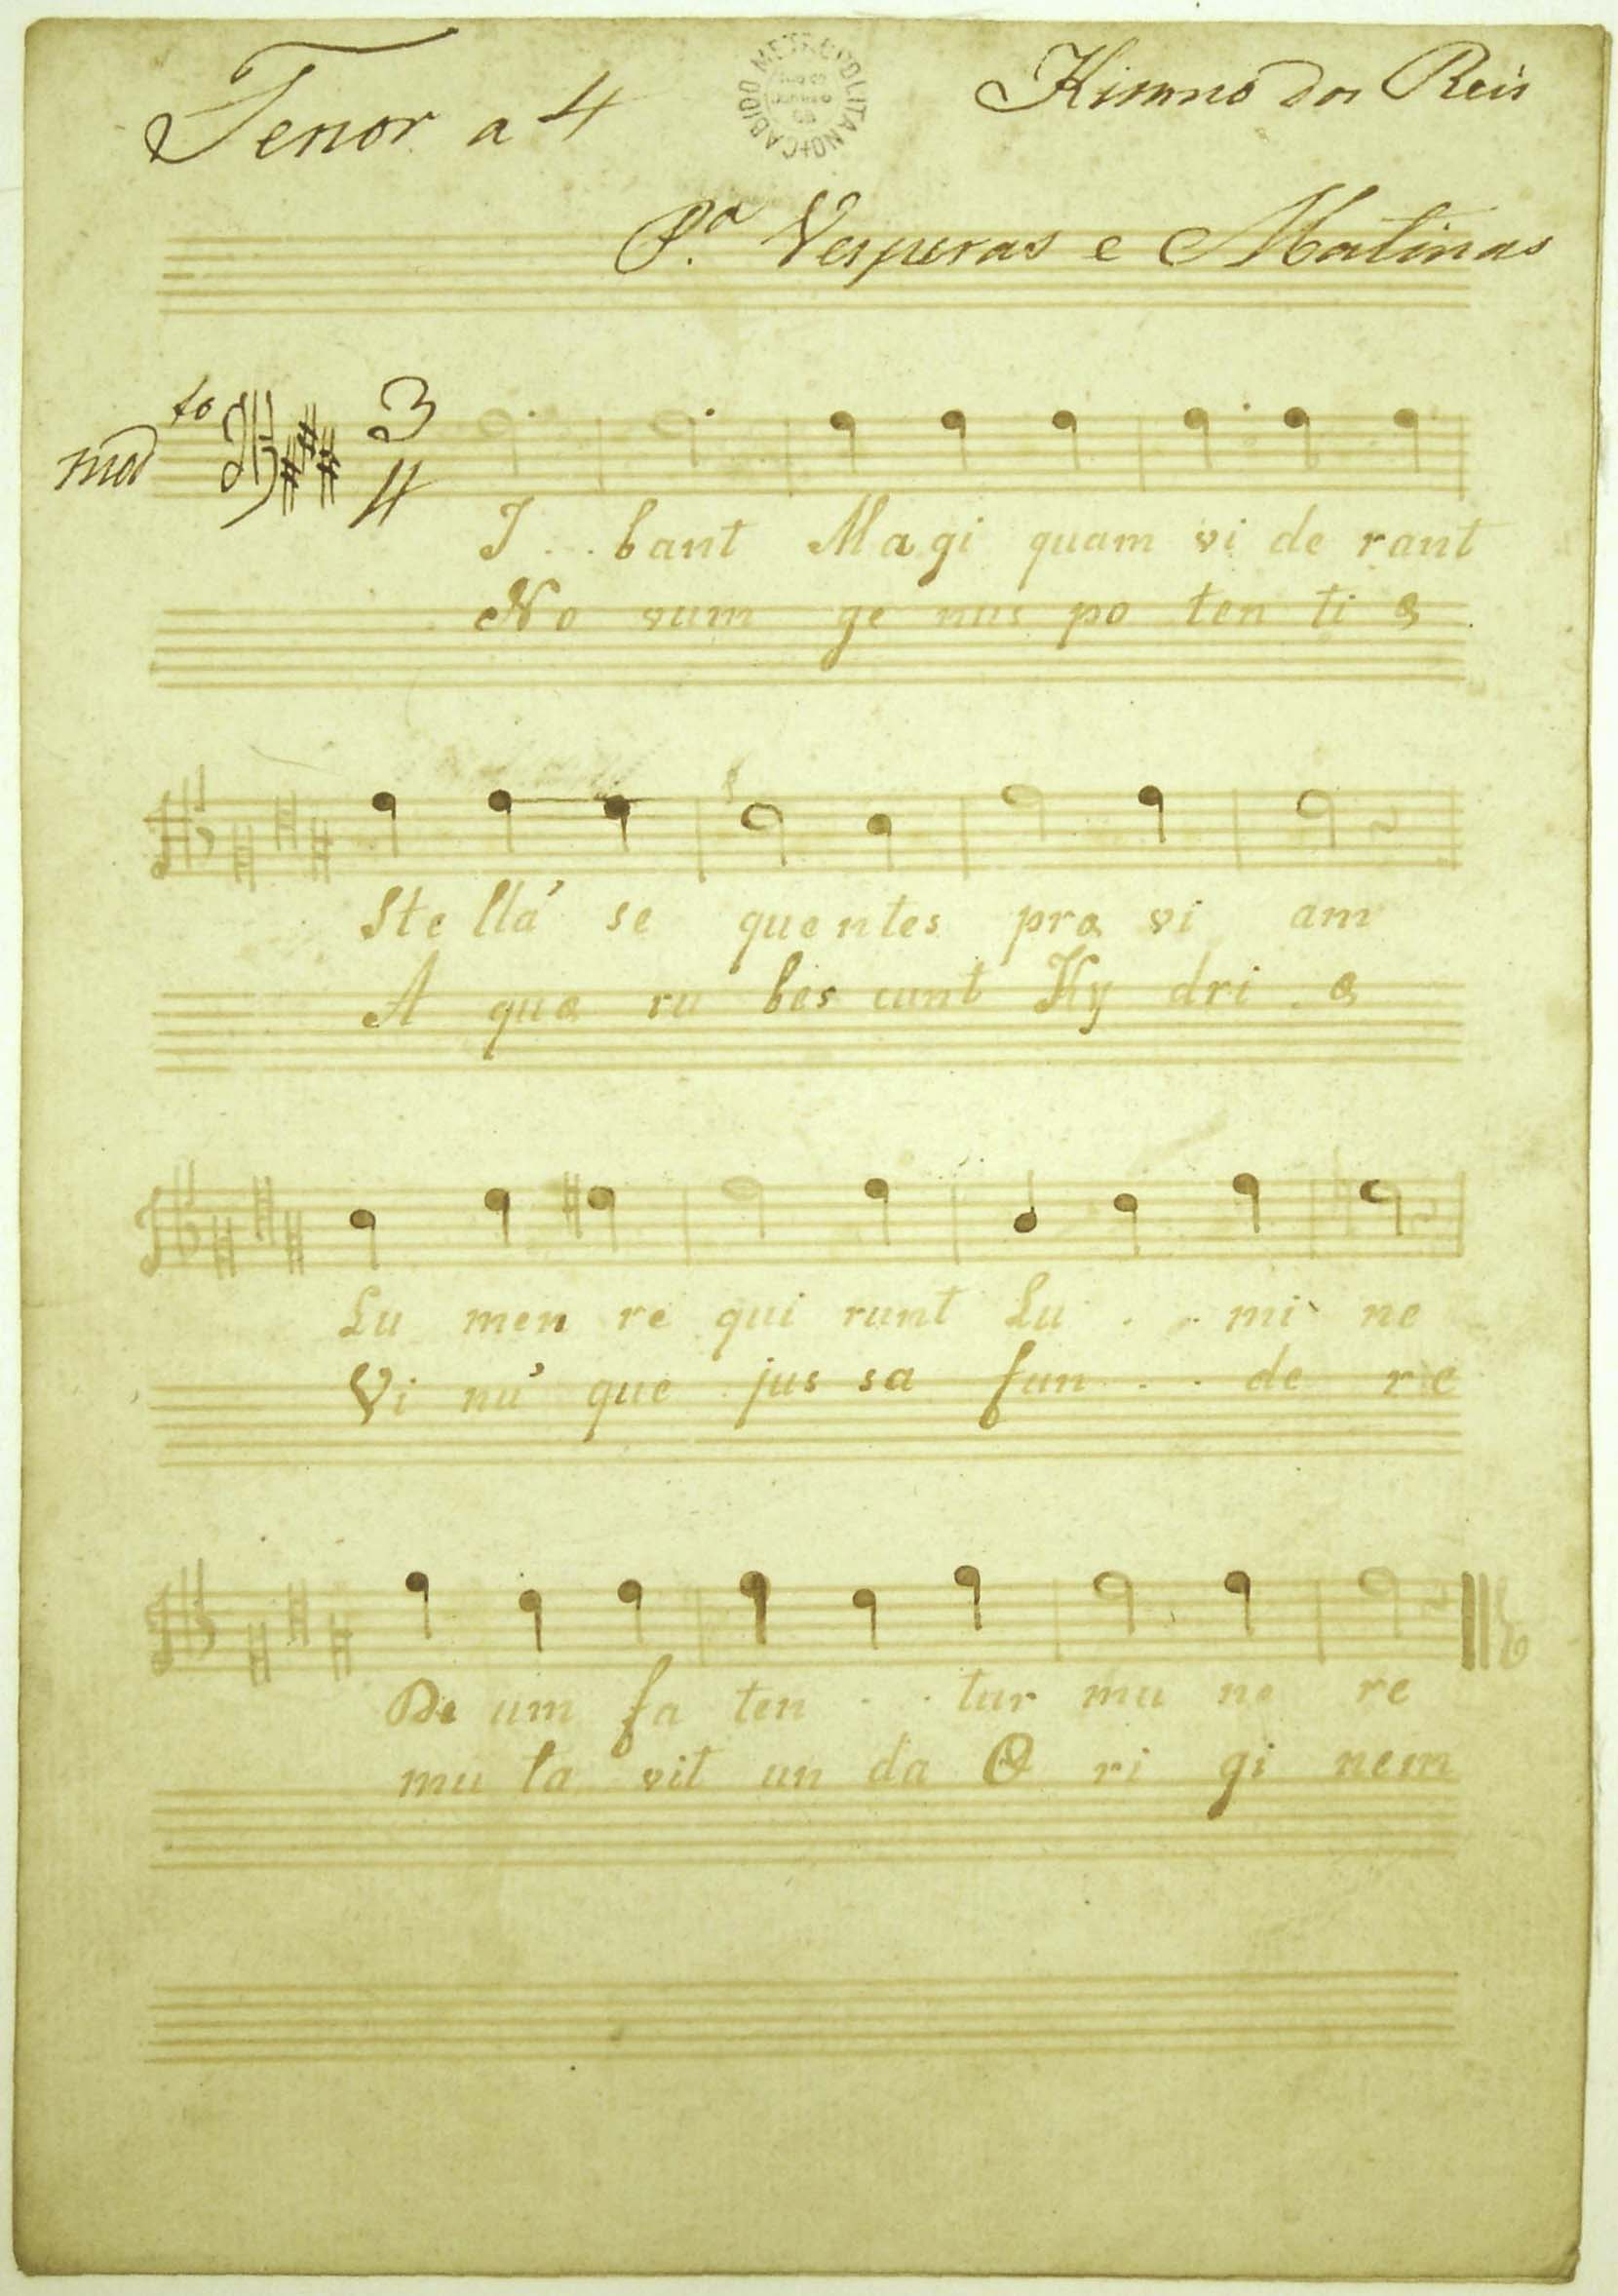 Tenor a 4
CABIDO METROPOLITANO
Himno dos Reis
P.ª Vesperas e Matinas
mod to
3
4
I . . bant Magi quam vi de rant
No vum ge nus po ten ti æ
Ste llã se quentes præ vi am
A quæ ru bes cunt Hy dri æ
Lu men re qui runt Lu . . mi ne
Vi nũ que jus sa fun . . de re
De um fa ten . . tur mu ne re
mu ta vit un da O ri gi nem